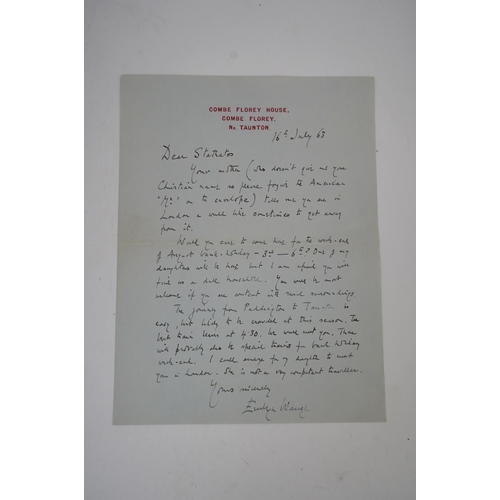 COMBE FLOREY HOUSE,
COMBE FLOREY,
Nr TAUNTON
16th July 63
Dear Stathatos
Your mother (who doesn't give me your
Christian name so please forgive the American
'Mr' on the envelope) tells me you are in
London & would like sometimes to get away
from it.
Would you care to come here for the week-end
of August bank-holiday – 3rd – 6th? One of my
daughters will be here but I am afraid you will
find us a dull household. You will be most
welcome if you are content with rural surroundings.
The journey from Paddington to Taunton is
easy, but likely to be crowded at this season. The
best train leaves at 4.30. We will meet you. There
will probably also be special trains for bank holiday
week-end. I could arrange for my daughter to meet
you in London. She is not a very competent traveller.
Yours sincerely
Evelyn Waugh